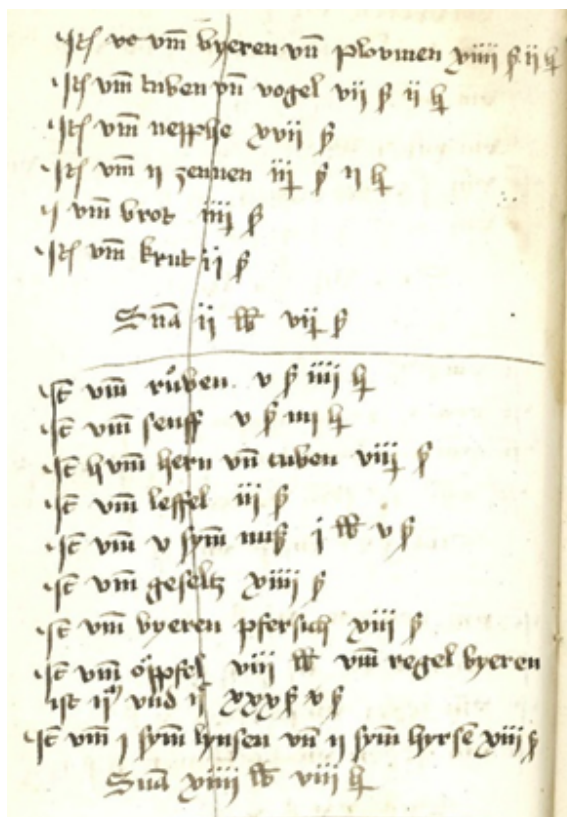 Itē vō vm̄ byeren vn̄ plovmen xviiij ß ii hl
Itē vm̄ tuben vn̄ vogel vij ß ii hl
Itē vm̄ nepplie xvij ß
Itē vm̄ ij zennen iij ß ij hl
ij vm̄ brot iiij ß
Itē vm̄ krut ij ß
Sūa ij lb vij ß
It̄ vm̄ růben v ß iiij hl
It̄ vm̄ senff v ß iij hl
It̄ vm̄ hern vn̄ tuben viij ß
It̄ vm̄ leffel iij ß
It̄ vm̄ v sym̄ nuß j lb v ß
It̄ vm̄ geseltz xiiij ß
It̄ vm̄ byeren pfersich xiij ß
It̄ vm̄ öppfel viij lb vm̄ regel byeren
ist vnd ij xxxß v ß
It̄ vm̄ j sym̄ lynsen vn̄ ij sym̄ hyrse xiij ß
Sūa xiiij lb viij hl